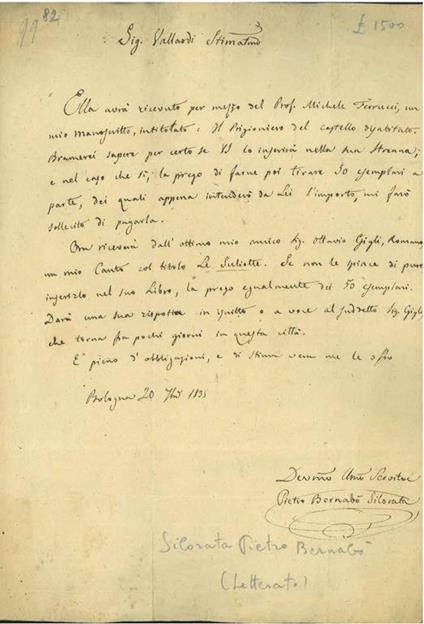 82
99
£ 1500
Sig. Vallardi Stimatmo
Ella avrà ricevuto per mezzo del Prof. Michele Ferrucci, un
mio manoscritto, intitolato: Il Prigioniero del castello disabitato.
Bramerei sapere per certo se VS lo inserirà nella sua Strenna;
e nel caso che sì, la prego di farne poi tirare 50 esemplari a
parte, dei quali appena intenderò da Lei l'importo, mi farò
sollecito di pagarla.
Ora riceverà dall'ottimo mio amico Sig. Ottavio Gigli, Romano,
un mio Canto col titolo Le Suliotte. Se non le spiace di pure
inserirlo nel suo Libro, la prego egualmente dei 50 esemplari.
Darà una sua risposta in iscritto o a voce al suddetto Sig. Gigli,
che torna fra pochi giorni in questa città.
E pieno d'obbligazioni, e di stima vera me le offro
Bologna 20 1835
Devmo Amo Servitore
Pietro Bernabò Silorata
Silorata Pietro Bernabò
(Letterato)